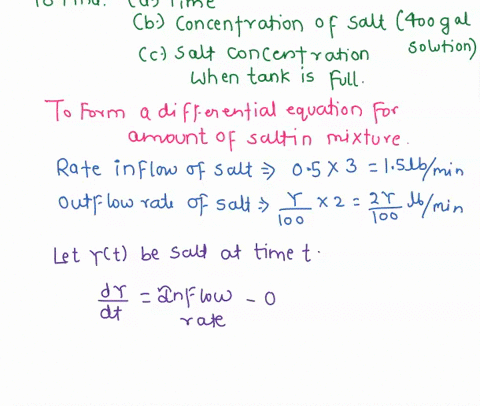 To Find: (a) Time
(b.) Concentration of salt (400 gal solution)
(c.) Salt concentration
when tank is full.
To Form a differential equation for
amount of salt in mixture.
Rate inflow of salt ⇒ 0.5 × 3 = 1.5 lb/min
Outflow rate of salt ⇒ r/100 × 2 = 2r/100 lb/min
Let r(t) be salt at time t.
dr/dt = Inflow rate - O